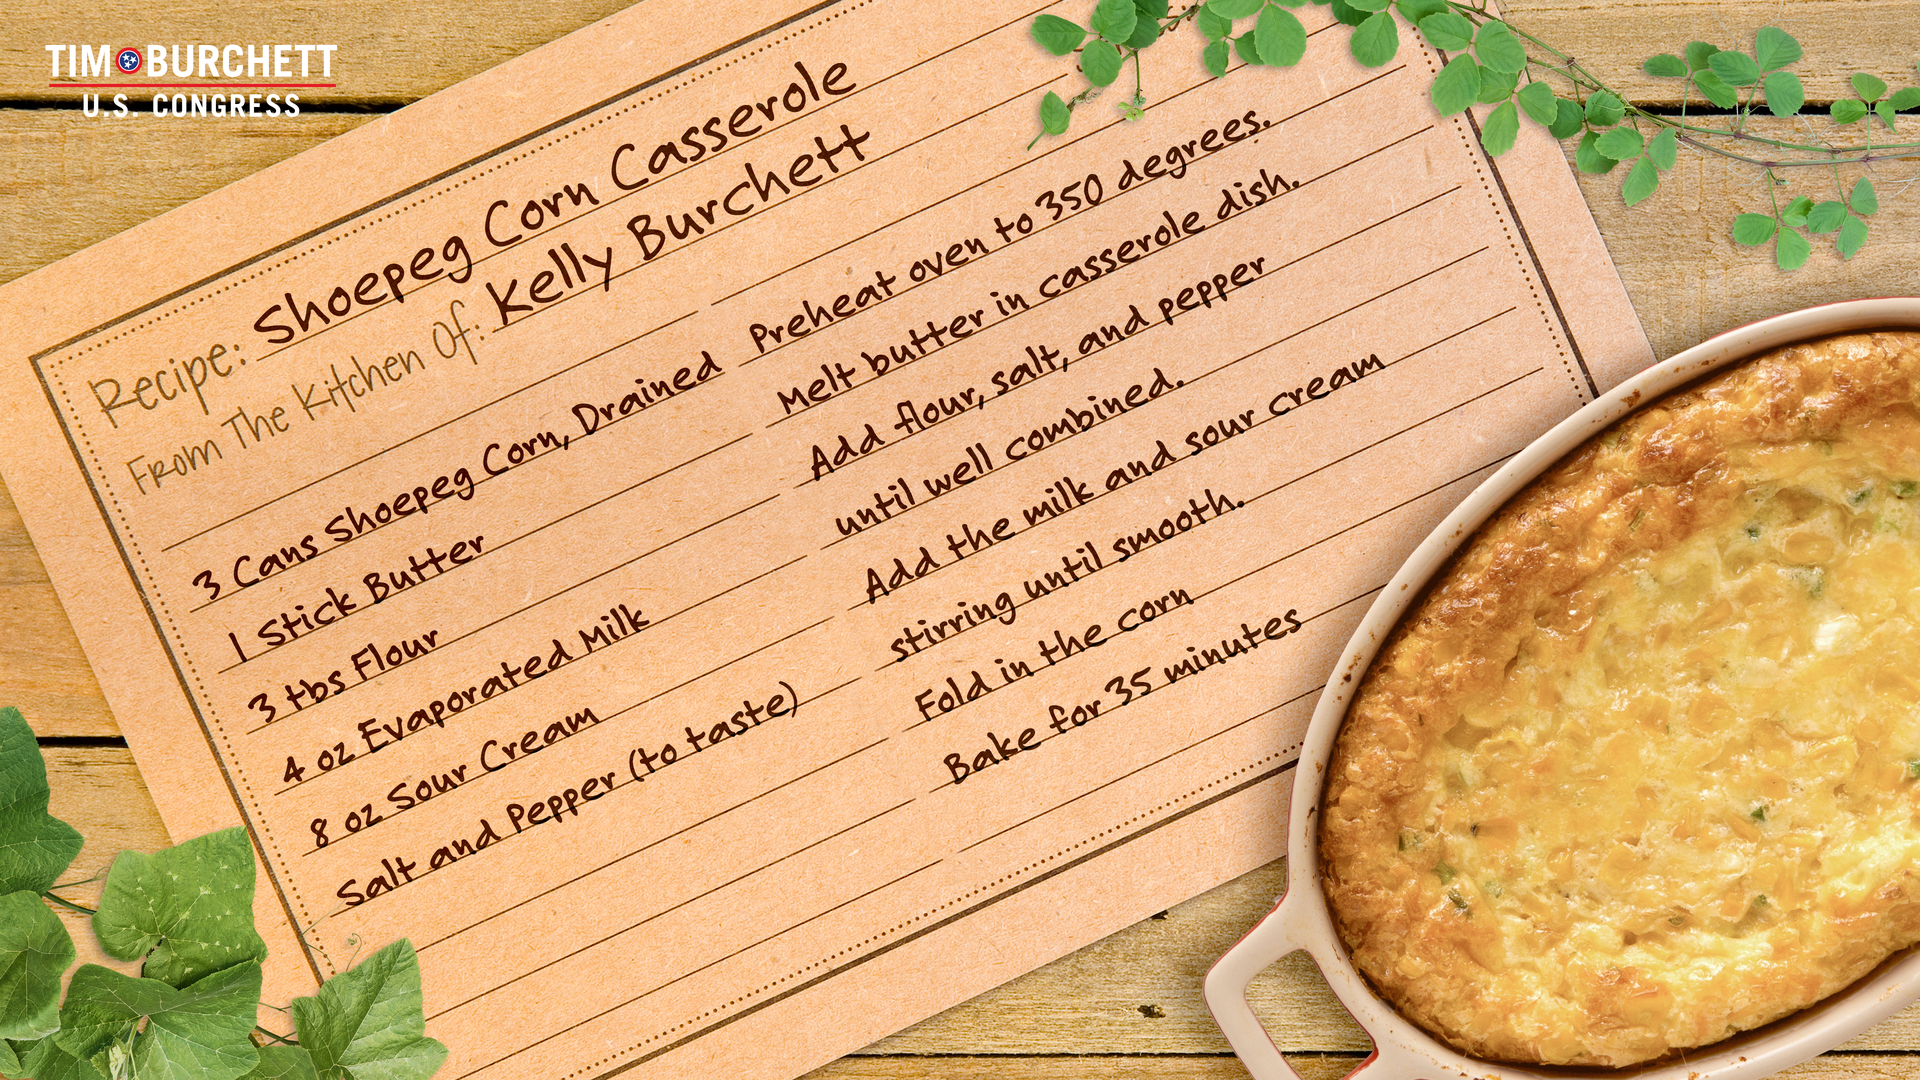 TIM BURCHETT
U.S. CONGRESS
Recipe: Shoepeg Corn Casserole
From The Kitchen Of: Kelly Burchett
3 Cans Shoepeg Corn, Drained
1 Stick Butter
3 tbs Flour
4 oz Evaporated Milk
8 oz Sour Cream
Salt and Pepper (to taste)
Preheat oven to 350 degrees.
Melt butter in casserole dish.
Add flour, salt, and pepper
until well combined.
Add the milk and sour cream
stirring until smooth.
Fold in the corn
Bake for 35 minutes